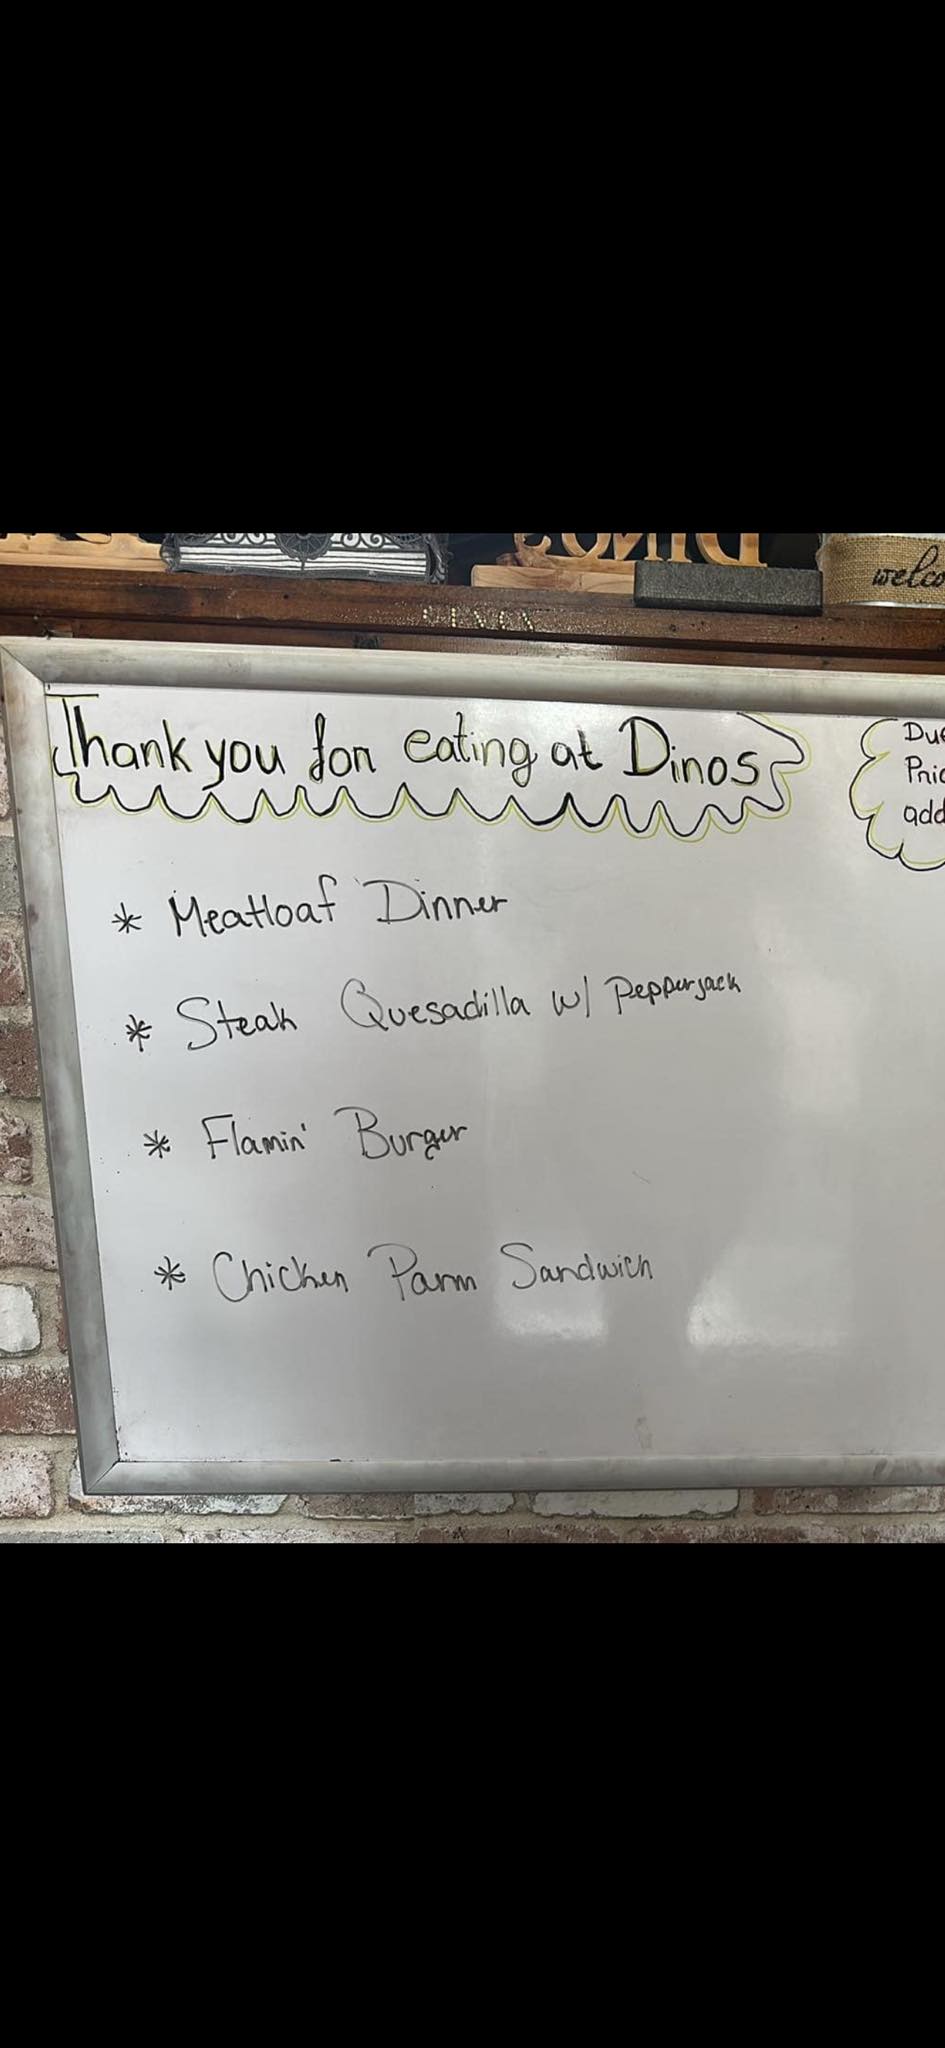 DINOS
welco
Thank you for eating at Dinos
Due
Pric
add
* Meatloaf Dinner
* Steak Quesadilla w/ Pepperjack
* Flamin' Burger
* Chicken Parm Sandwich